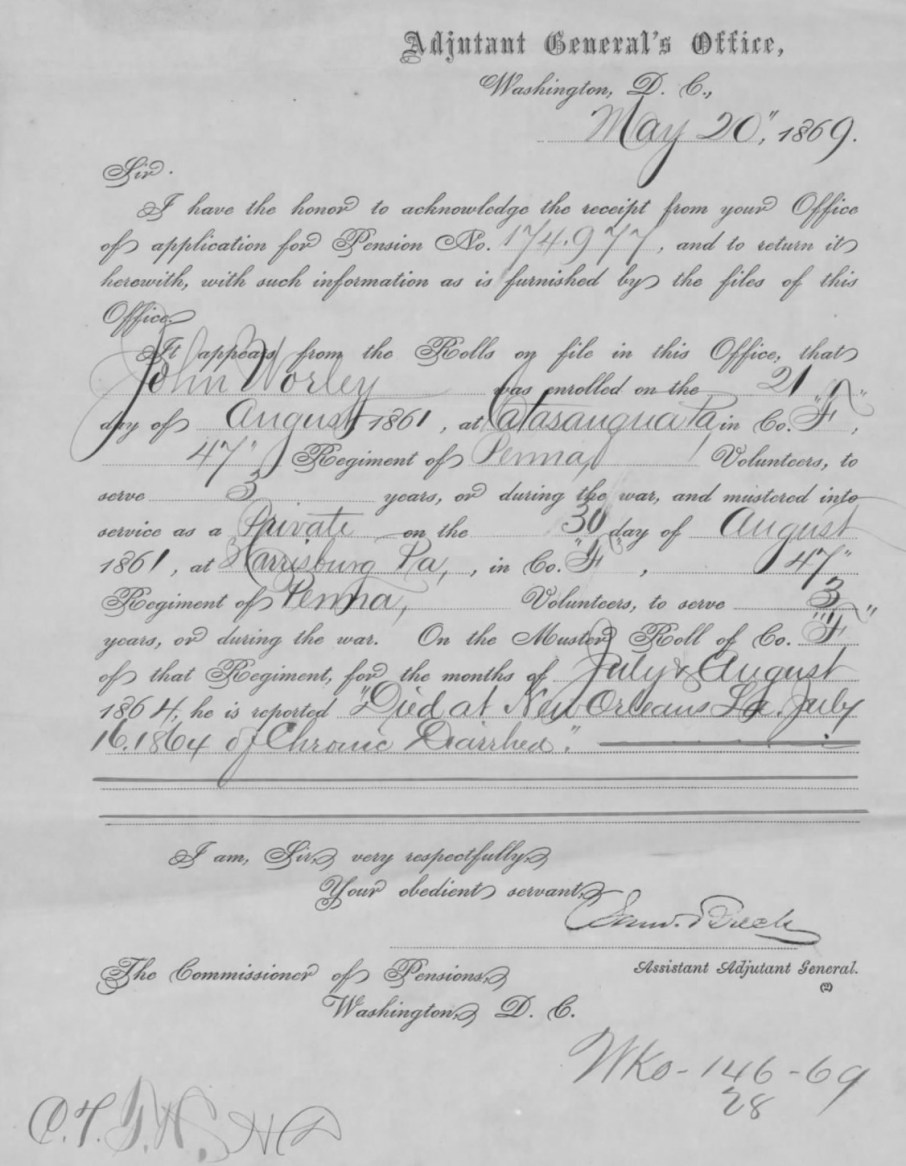 Adjutant General's Office,
Washington, D. C.,
May 20", 1869.
Sir.
I have the honor to acknowledge the receipt from your Office
of application for Pension No. 174.977, and to return it
herewith, with such information as is furnished by the files of this
Office.
It appears from the Rolls on file in this Office, that
John Worley was enrolled on the 21
day of August 1861, at Catasauqua Pa in Co. "F",
47" Regiment of Penna, Volunteers, to
serve 3 years, or during the war, and mustered into
service as a Private on the 30 day of August
1861, at Harrisburg Pa, in Co. "F", 47"
Regiment of Penna, Volunteers, to serve 3
years, or during the war. On the Muster Roll of Co. "F"
of that Regiment, for the months of July & August
1864, he is reported "Died at New Orleans La. July
16.1864 of Chronic Diarrhea".
I am, Sir, very respectfully,
Your obedient servant,
Saml. Breck
Assistant Adjutant General.
(2)
The Commissioner of Pensions,
Washington, D. C.
146-69
28